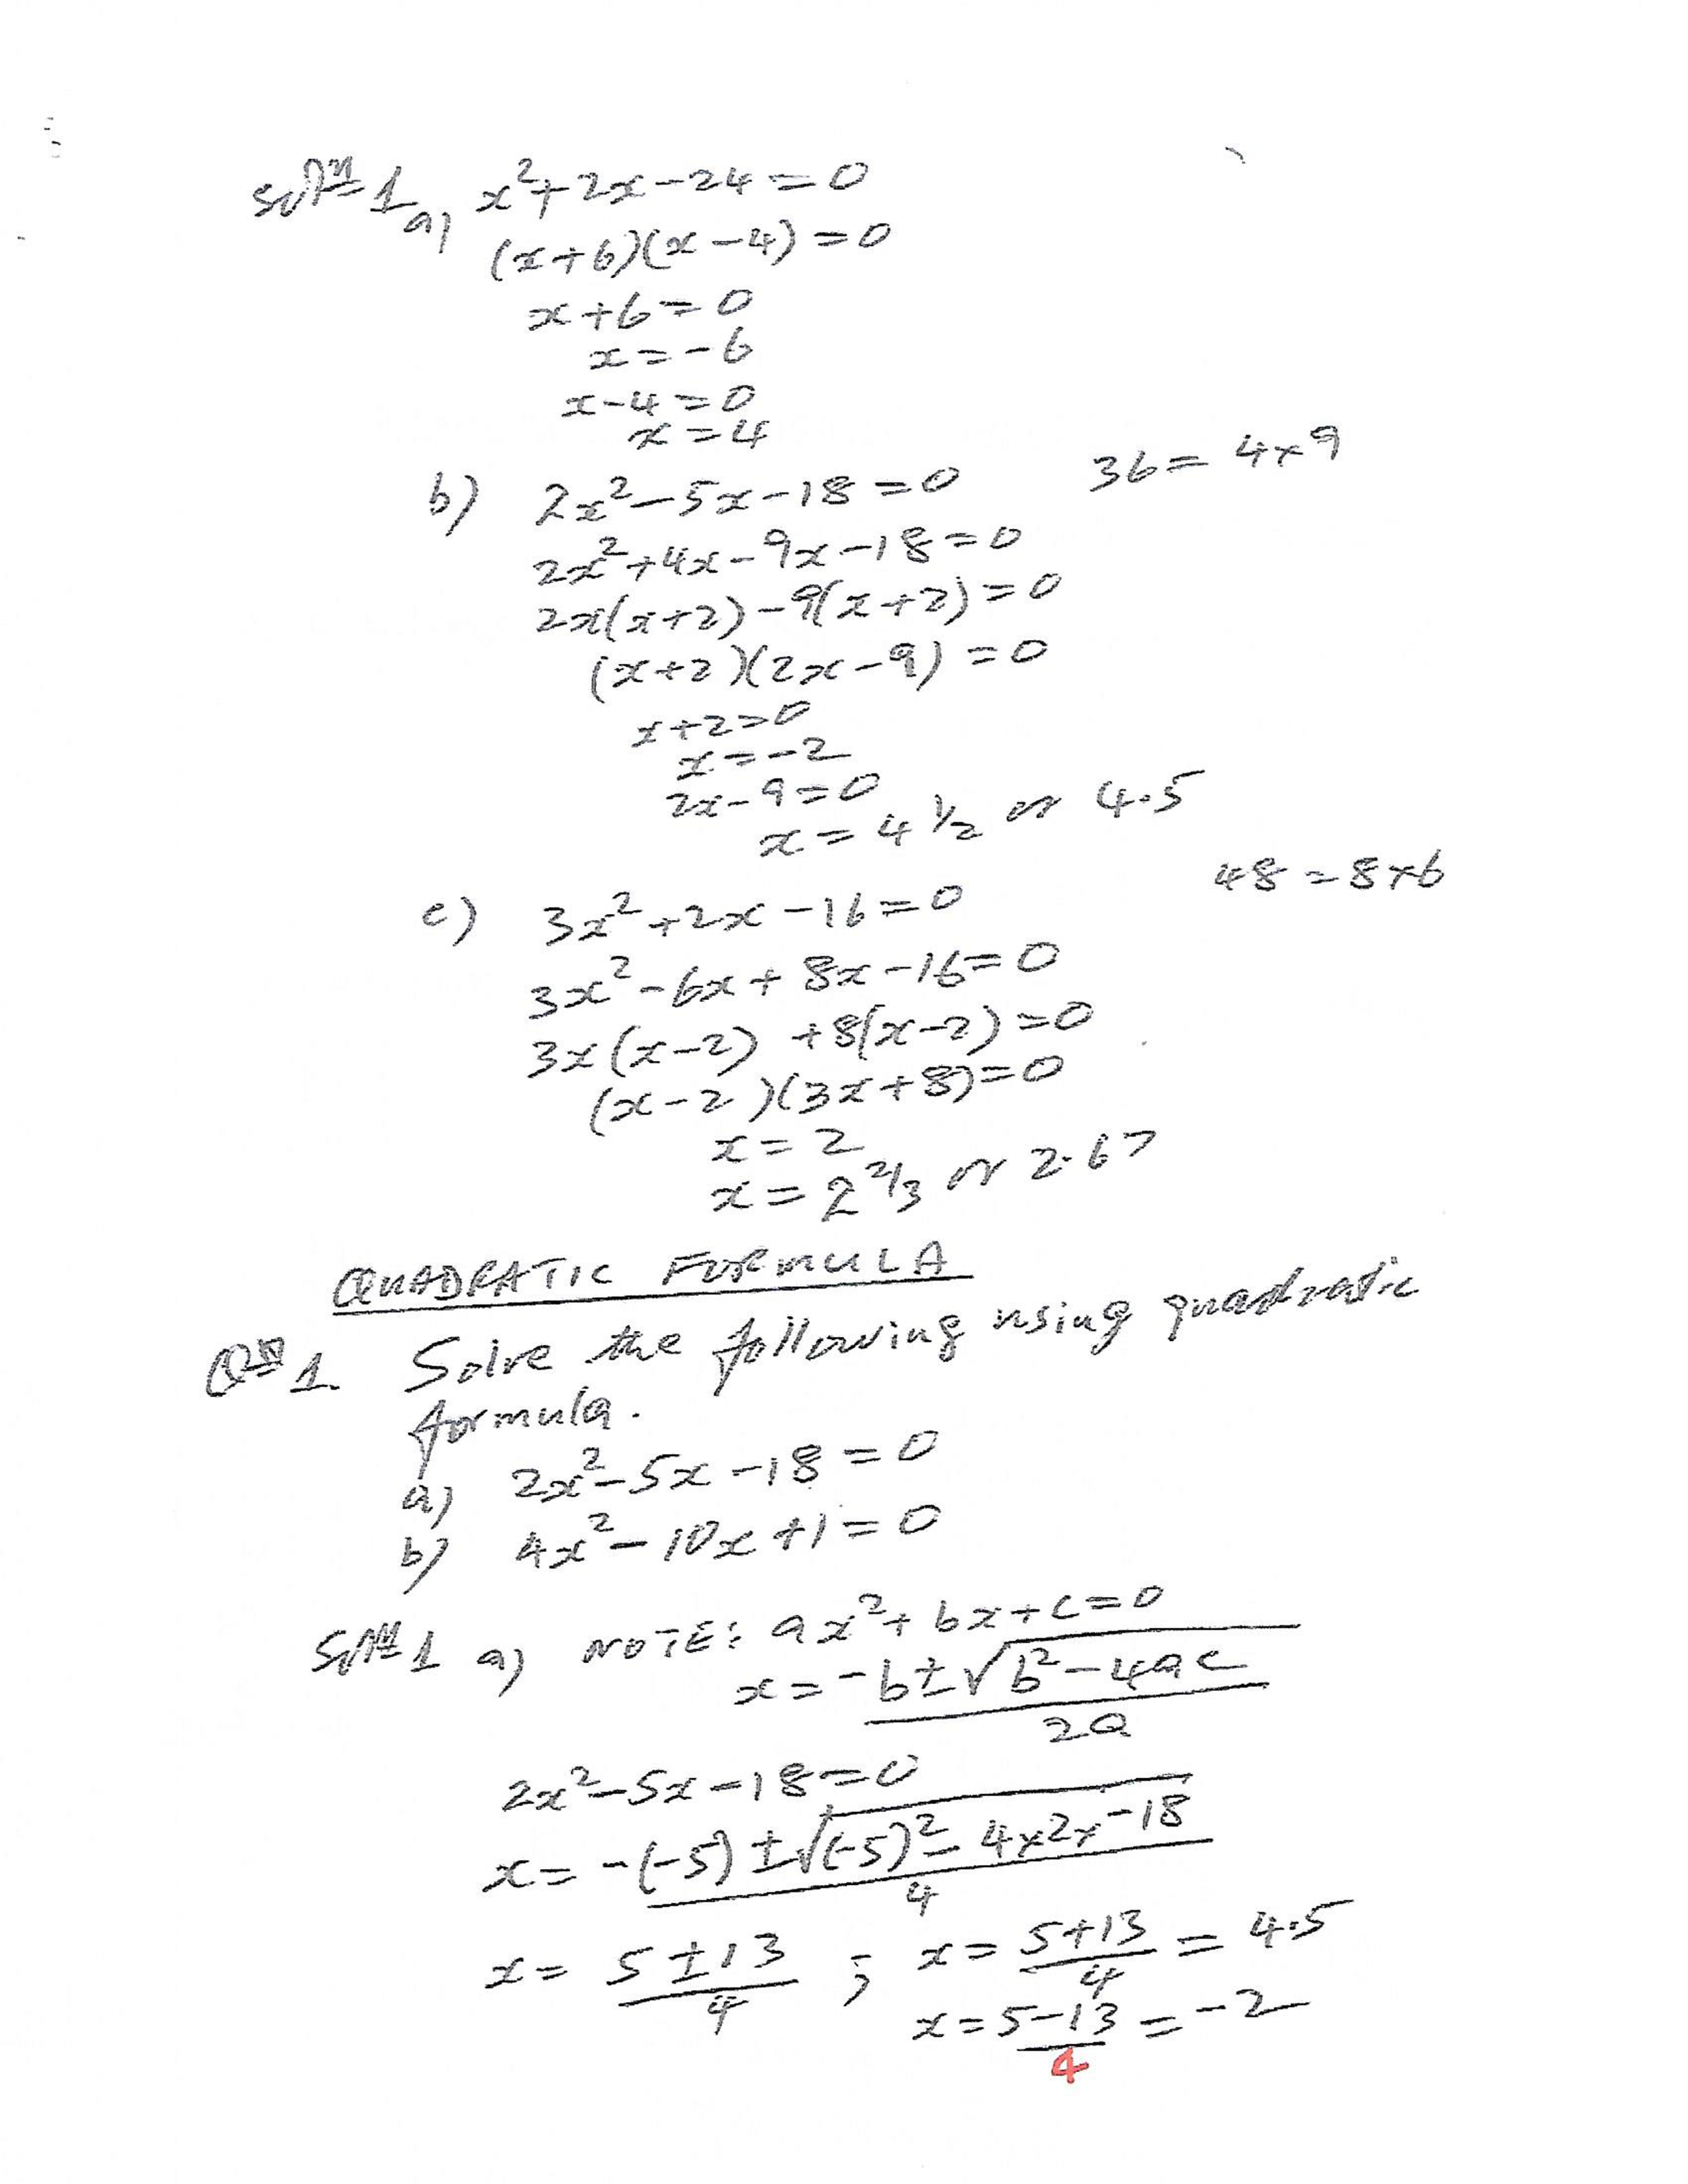 Solⁿ 1 a) x²+2x-24=0
(x+6)(x-4)=0
x+6=0
x=-6
x-4=0
x=4
b) 2x²-5x-18=0 36=4x9
2x²+4x-9x-18=0
2x(x+2)-9(x+2)=0
(x+2)(2x-9)=0
x+2=0
x=-2
2x-9=0
x=4 1/2 or 4.5
c) 3x²+2x-16=0 48=8x6
3x²-6x+8x-16=0
3x(x-2)+8(x-2)=0
(x-2)(3x+8)=0
x=2
x=2 2/3 or 2.67
QUADRATIC FORMULA
Qⁿ 1. Solve the following using quadratic
formula.
a) 2x²-5x-18=0
b) 4x²-10x+1=0
Solⁿ 1 a) NOTE: ax²+bx+c=0
x=-b±√b²-4ac
2a
2x²-5x-18=0
x=-(-5)±√(-5)²-4x2x-18
4
x=5±13 ; x=5+13=4.5
4 4
x=5-13=-2
4